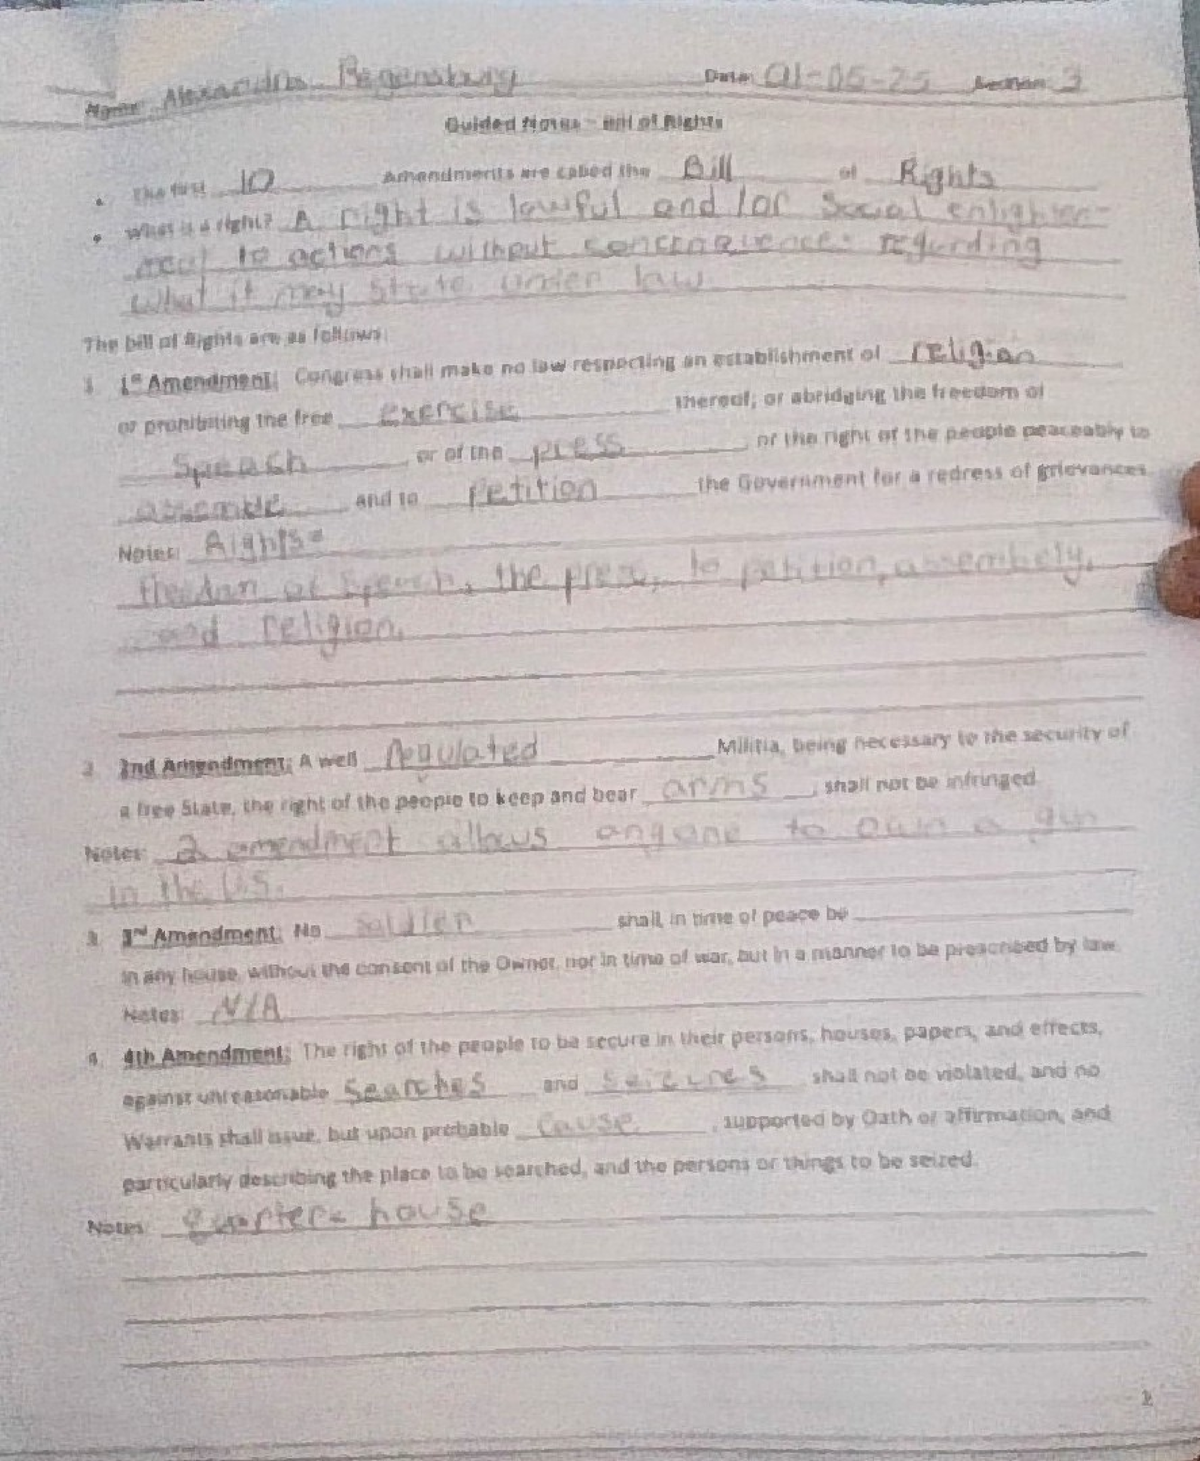 Name: Alexandria Regensburg Date: 01-05-25 Section: 3
Guided Notes - Bill of Rights
• The first 10 Amendments are called the Bill of Rights
• What is a right? A right is lawful and/or Social enlighten-
ment to actions without regarding
what it may state under law
The bill of Rights are as follows:
1. 1st Amendment: Congress shall make no law respecting an establishment of religion
or prohibiting the free exercise thereof; or abridging the freedom of
Speach or of the press or the right of the people peaceably to
assemble and to Petition the Government for a redress of grievances
Notes: Rights=
freedom of Speach, the press, to petition, assembely,
and religion.
2. 2nd Amendment: A well regulated Militia, being necessary to the security of
a free State, the right of the people to keep and bear arms, shall not be infringed
Notes: 2 amendment allows anyone to own a gun
in the U.S.
3. 3rd Amendment: No soldier shall, in time of peace be
in any house, without the consent of the Owner, nor in time of war, but in a manner to be prescribed by law.
Notes: N/A
4. 4th Amendment: The right of the people to be secure in their persons, houses, papers, and effects,
against unreasonable Searches and Seizures shall not be violated, and no
Warrants shall issue, but upon probable Cause, supported by Oath or affirmation, and
particularly describing the place to be searched, and the persons or things to be seized.
Notes: house